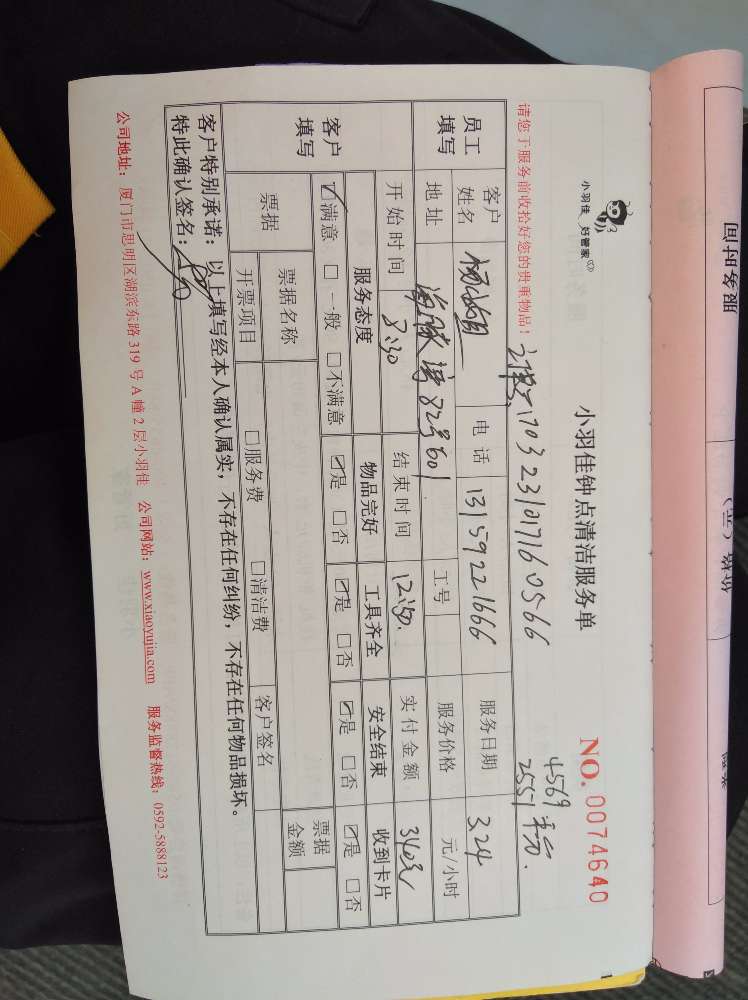 小羽佳 好管家
小羽佳钟点清洁服务单
NO. 0074640
4569
2551
请您于服务前收拾好您的贵重物品！
1703231017160566
员工填写
客户姓名
电话 13159221666
服务日期 3.24
地址 82号601
工号
服务价格 元/小时
开始时间 3:50
结束时间 12:50.
实付金额 340元
客户填写
服务态度 物品完好 工具齐全 安全结束 收到卡片
☑满意 □一般 □不满意 ☑是 □否 ☑是 □否 ☑是 □否 ☑是 □否
票据
票据名称
票据金额
开票项目 □服务费 □清洁费 客户签名
客户特别承诺：以上填写经本人确认属实，不存在任何纠纷，不存在任何物品损坏。
特此确认签名：
公司地址：厦门市思明区湖滨东路 319 号 A 幢 2 层小羽佳 公司网站：www.xiaoyujia.com 服务监督热线：0592-5888123